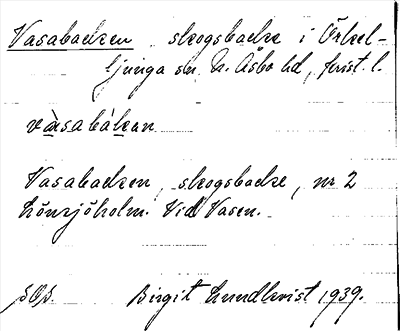 Vasabacken skogsbacke i Örkel-
ljunga sn, N. Åsbo hd, krist. l.
vàsabákan
Vasabacken, skogsbacke, nr 2
Lönsjöholm. Vid Vasen.
Birgit Lundkvist 1939.